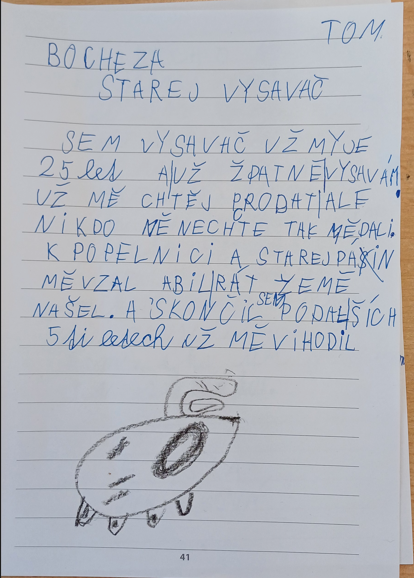 TOM
BOCHEZA
STAREJ VYSAVAČ
SEM VYSAVAČ UŽ MYJE
25 let A UŽ ŽPATNĚ VYSAVÁM.
UŽ MĚ CHTĚJ PRODAT ALE
NiKDO MĚ NECHTE TAK MĚ DALi.
K POPELNiCi A STAREJ PÁN
MĚ VZAL A BIL RÁT ŽE MĚ
NAŠEL. A SKONČIL SEM PO DALŠÍCH
5ti letech UŽ MĚ ViHODiL
41